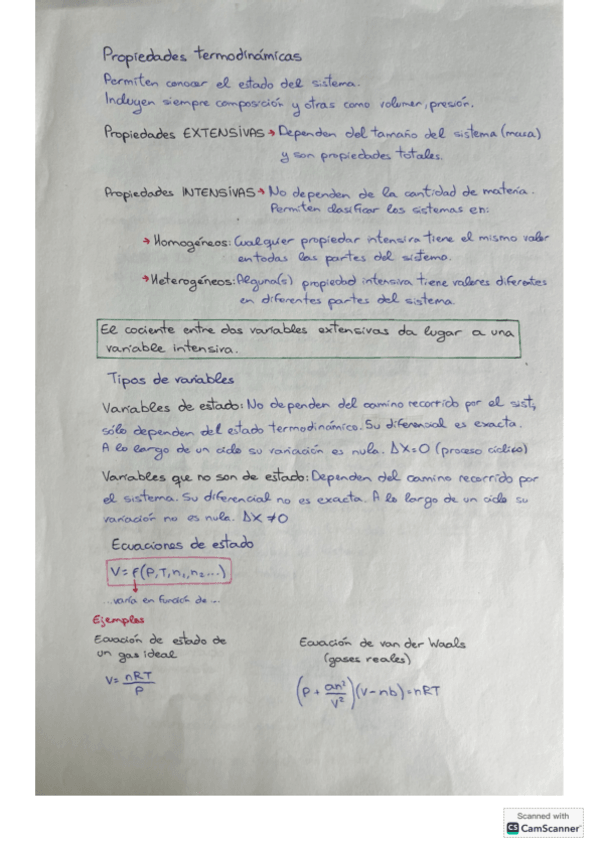 Propiedades termodinámicas
Permiten conocer el estado del sistema.
Incluyen siempre composición y otras como volumen, presión.
Propiedades EXTENSIVAS → Dependen del tamaño del sistema (masa)
y son propiedades totales.
Propiedades INTENSIVAS → No dependen de la cantidad de materia.
Permiten clasificar los sistemas en:
→ Homogéneos: Cualquier propiedar intensiva tiene el mismo valor
en todas las partes del sistema.
→ Heterogéneos: Alguna(s) propiedad intensiva tiene valores diferentes
en diferentes partes del sistema.
El cociente entre dos variables extensivas da lugar a una
variable intensiva.
Tipos de variables
Variables de estado: No dependen del camino recorrido por el sist,
sólo dependen del estado termodinámico. Su diferencial es exacta.
A lo largo de un ciclo su variación es nula. ΔX=0 (proceso cíclico)
Variables que no son de estado: Dependen del camino recorrido por
el sistema. Su diferencial no es exacta. A lo largo de un ciclo su
variación no es nula. ΔX ≠ 0
Ecuaciones de estado
V = f(P, T, n₁, n₂ ...)
... varía en función de ...
Ejemplos
Ecuación de estado de
un gas ideal
V = nRT/P
Ecuación de van der Waals
(gases reales)
(P + an²/V²)(V - nb) = nRT
Scanned with
CS CamScanner